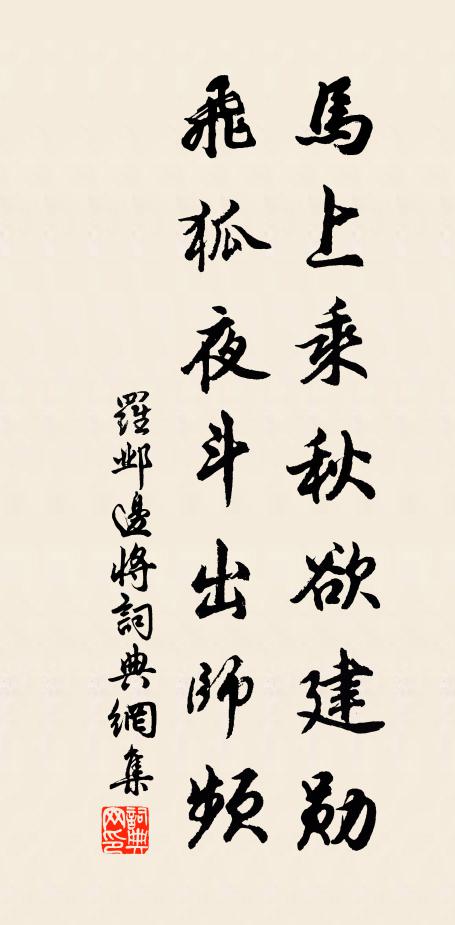 馬上乘秋欲建勛
飛狐夜斗出師頻
羅鄴邊將詞典網集
詞典网印